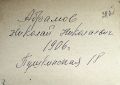 Абрамов
Николай Николаевич
1906г.
Пушкинская 18